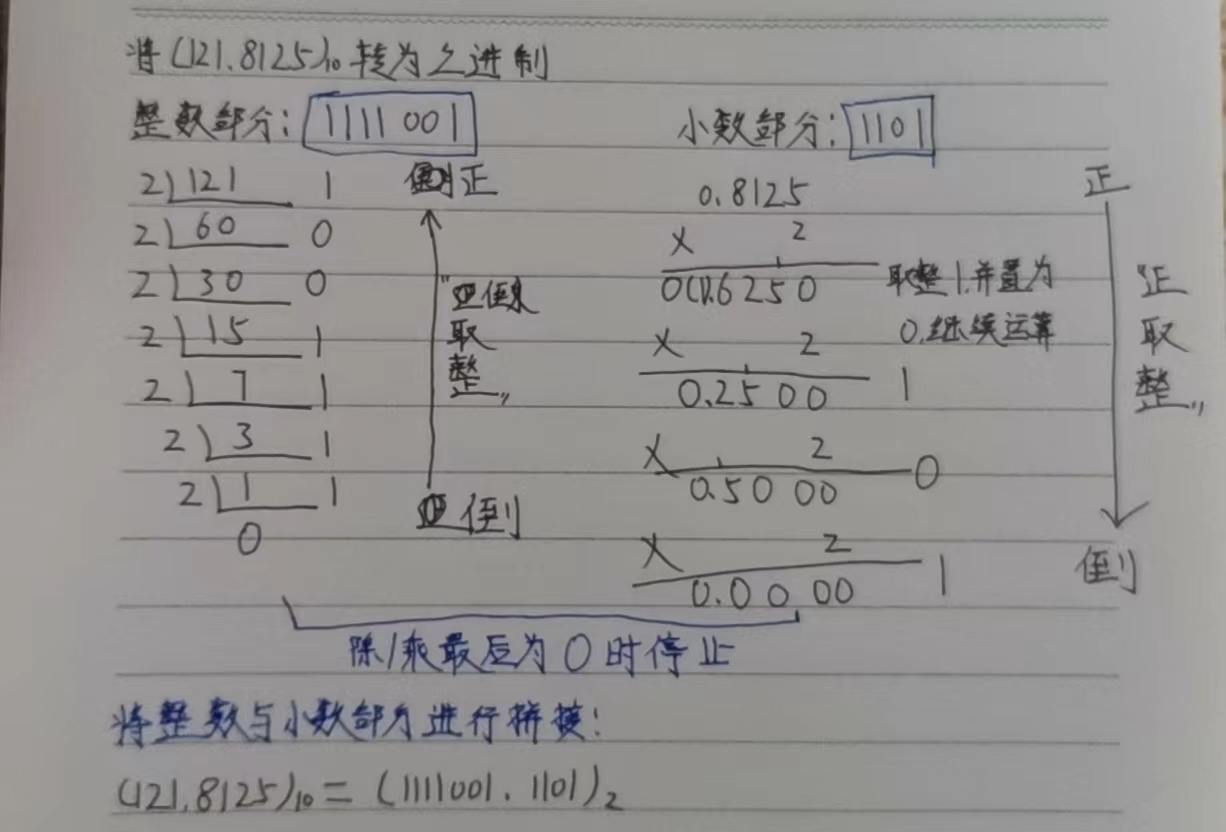 将(121.8125)₁₀转为2进制
整数部分: 1111001
小数部分: 1101
2 121 1
2 60 0
2 30 0
2 15 1
2 7 1
2 3 1
2 1 1
0
正
取
整"
倒
0.8125
× 2
.6250 取整1.并置为
0.继续运算
× 2
0.2500 1
× 2
0.5000 0
× 2
0.0000 1
正
"正
取
整"
倒
除/乘最后为0时停止
将整数与小数部分进行拼接:
(121.8125)₁₀=(1111001.1101)₂